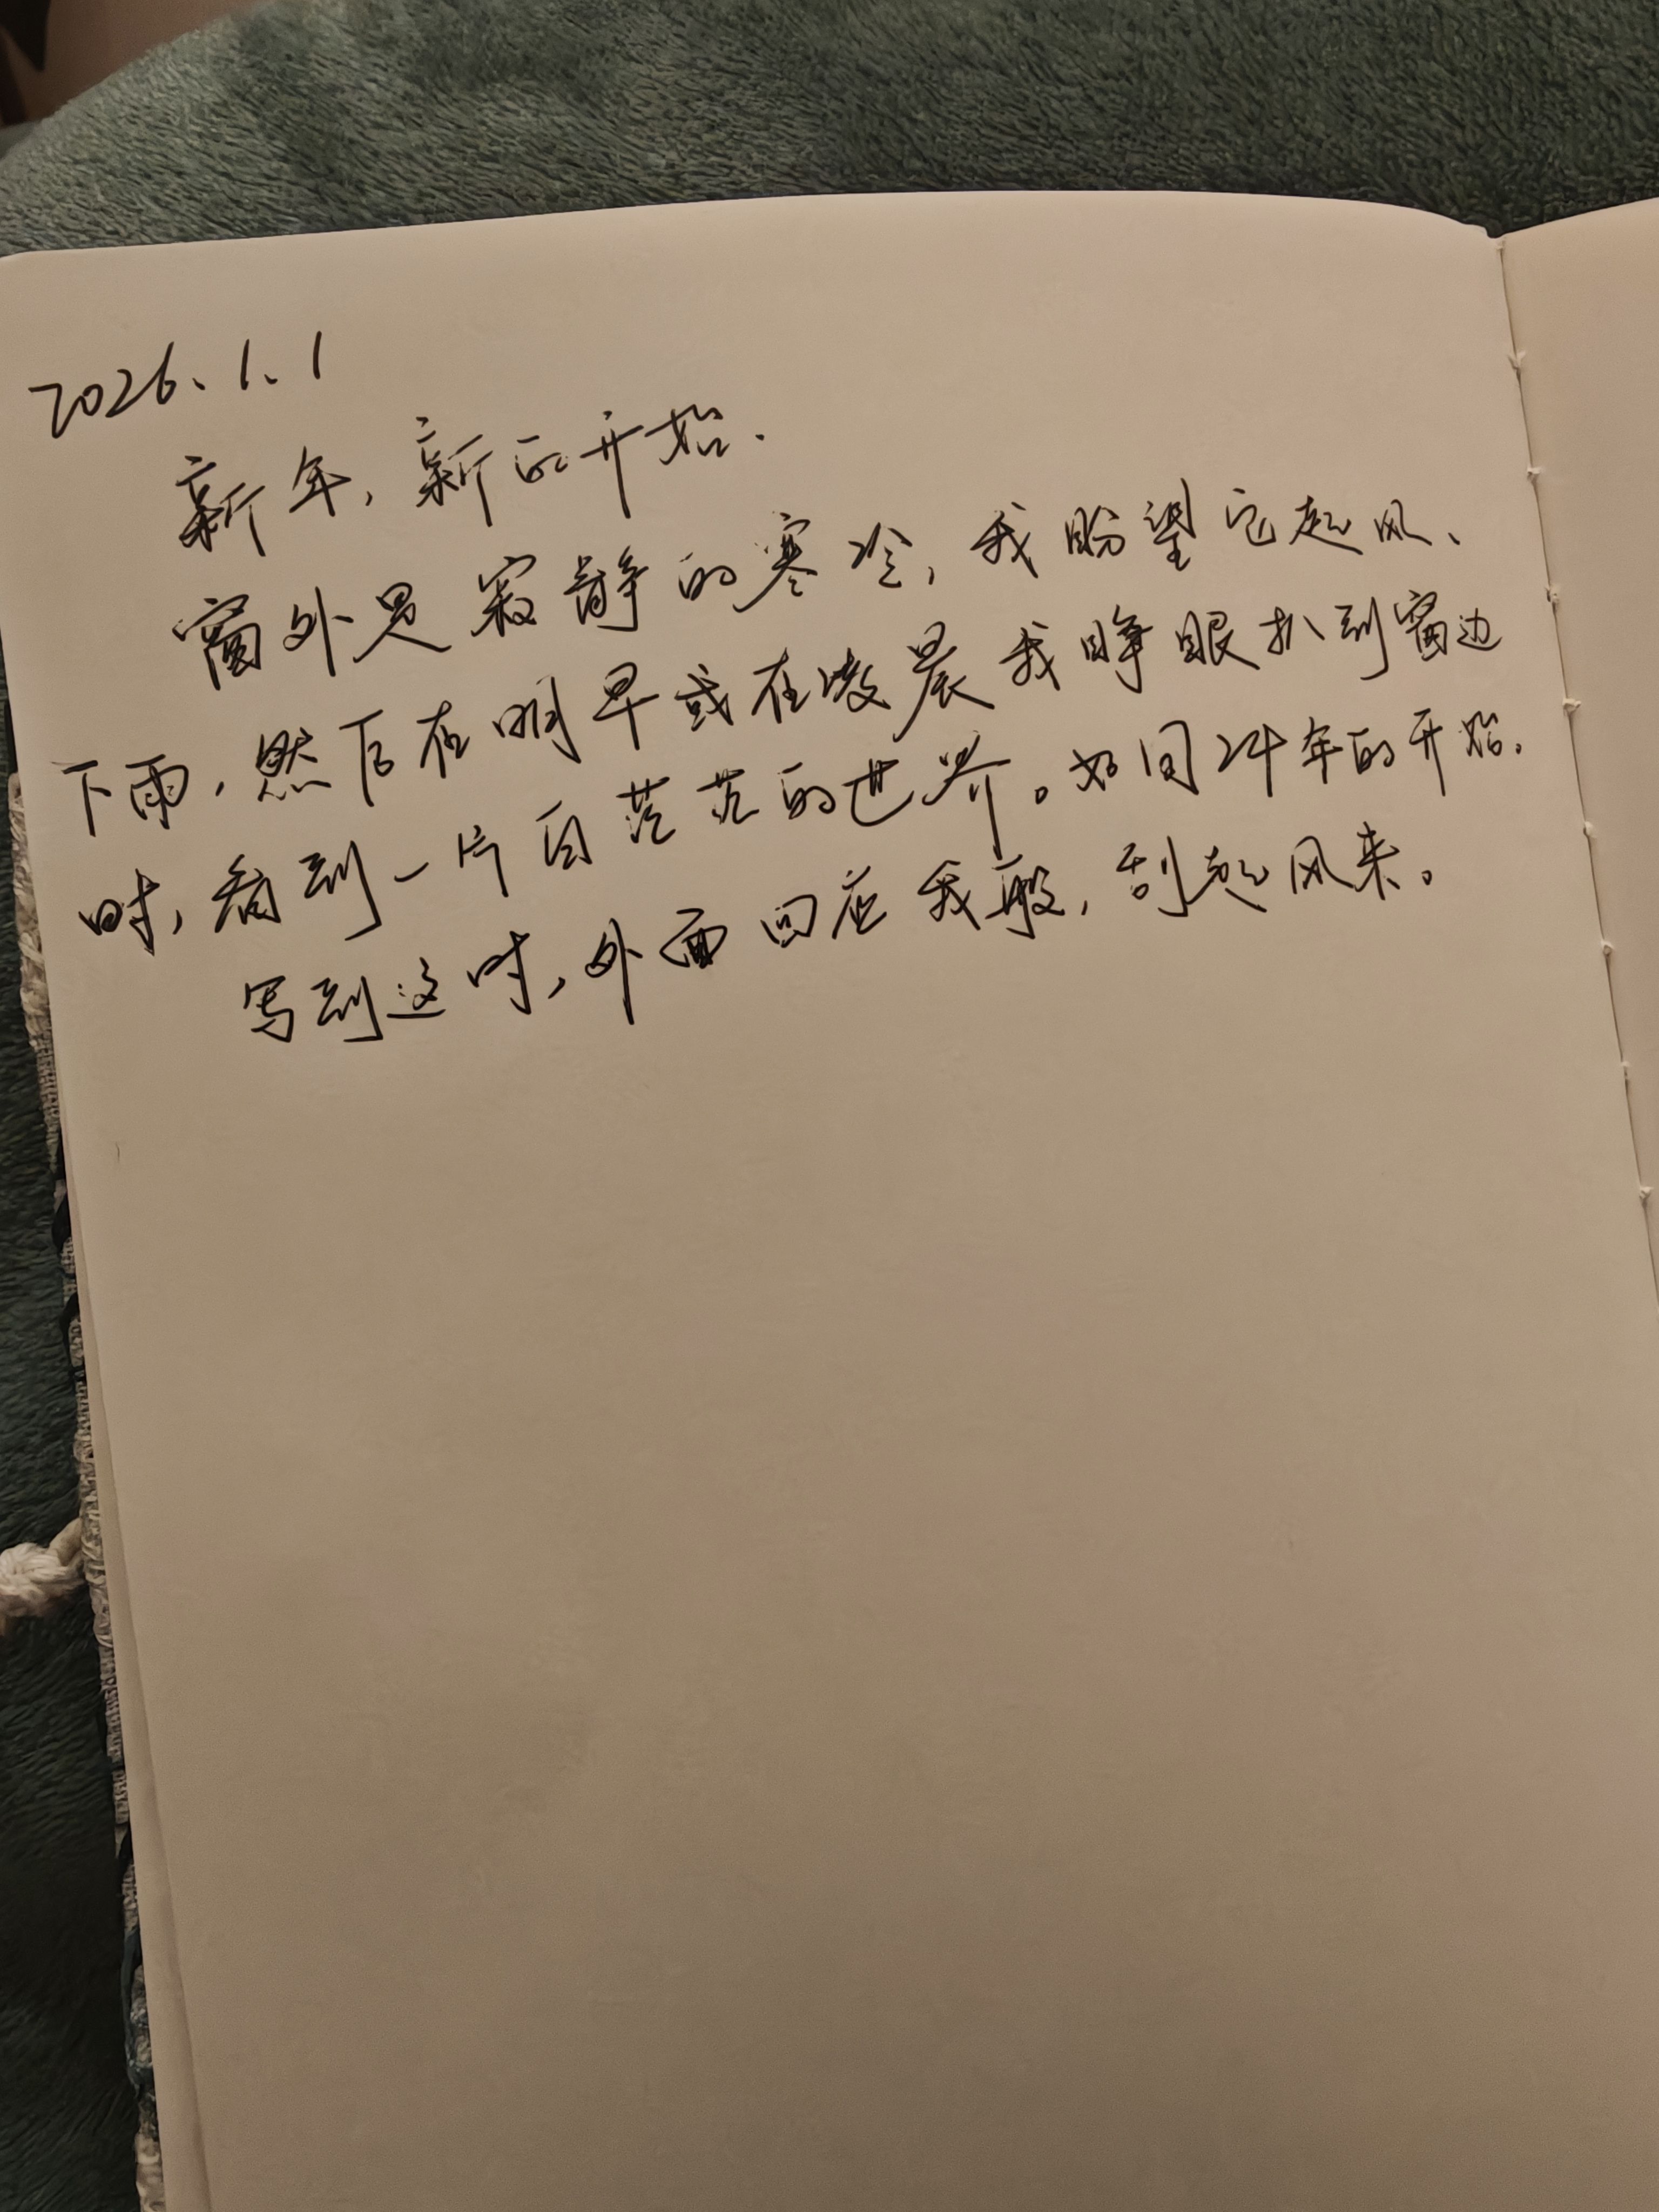 2026.1.1
新年，新的开始.
窗外是寂静的寒冷，我盼望它起风、
下雨，然后在明早或在凌晨我睁眼扒到窗边
时，看到一片白茫茫的世界。如同24年的开始.
写到这时，外面回应我般，刮起风来。